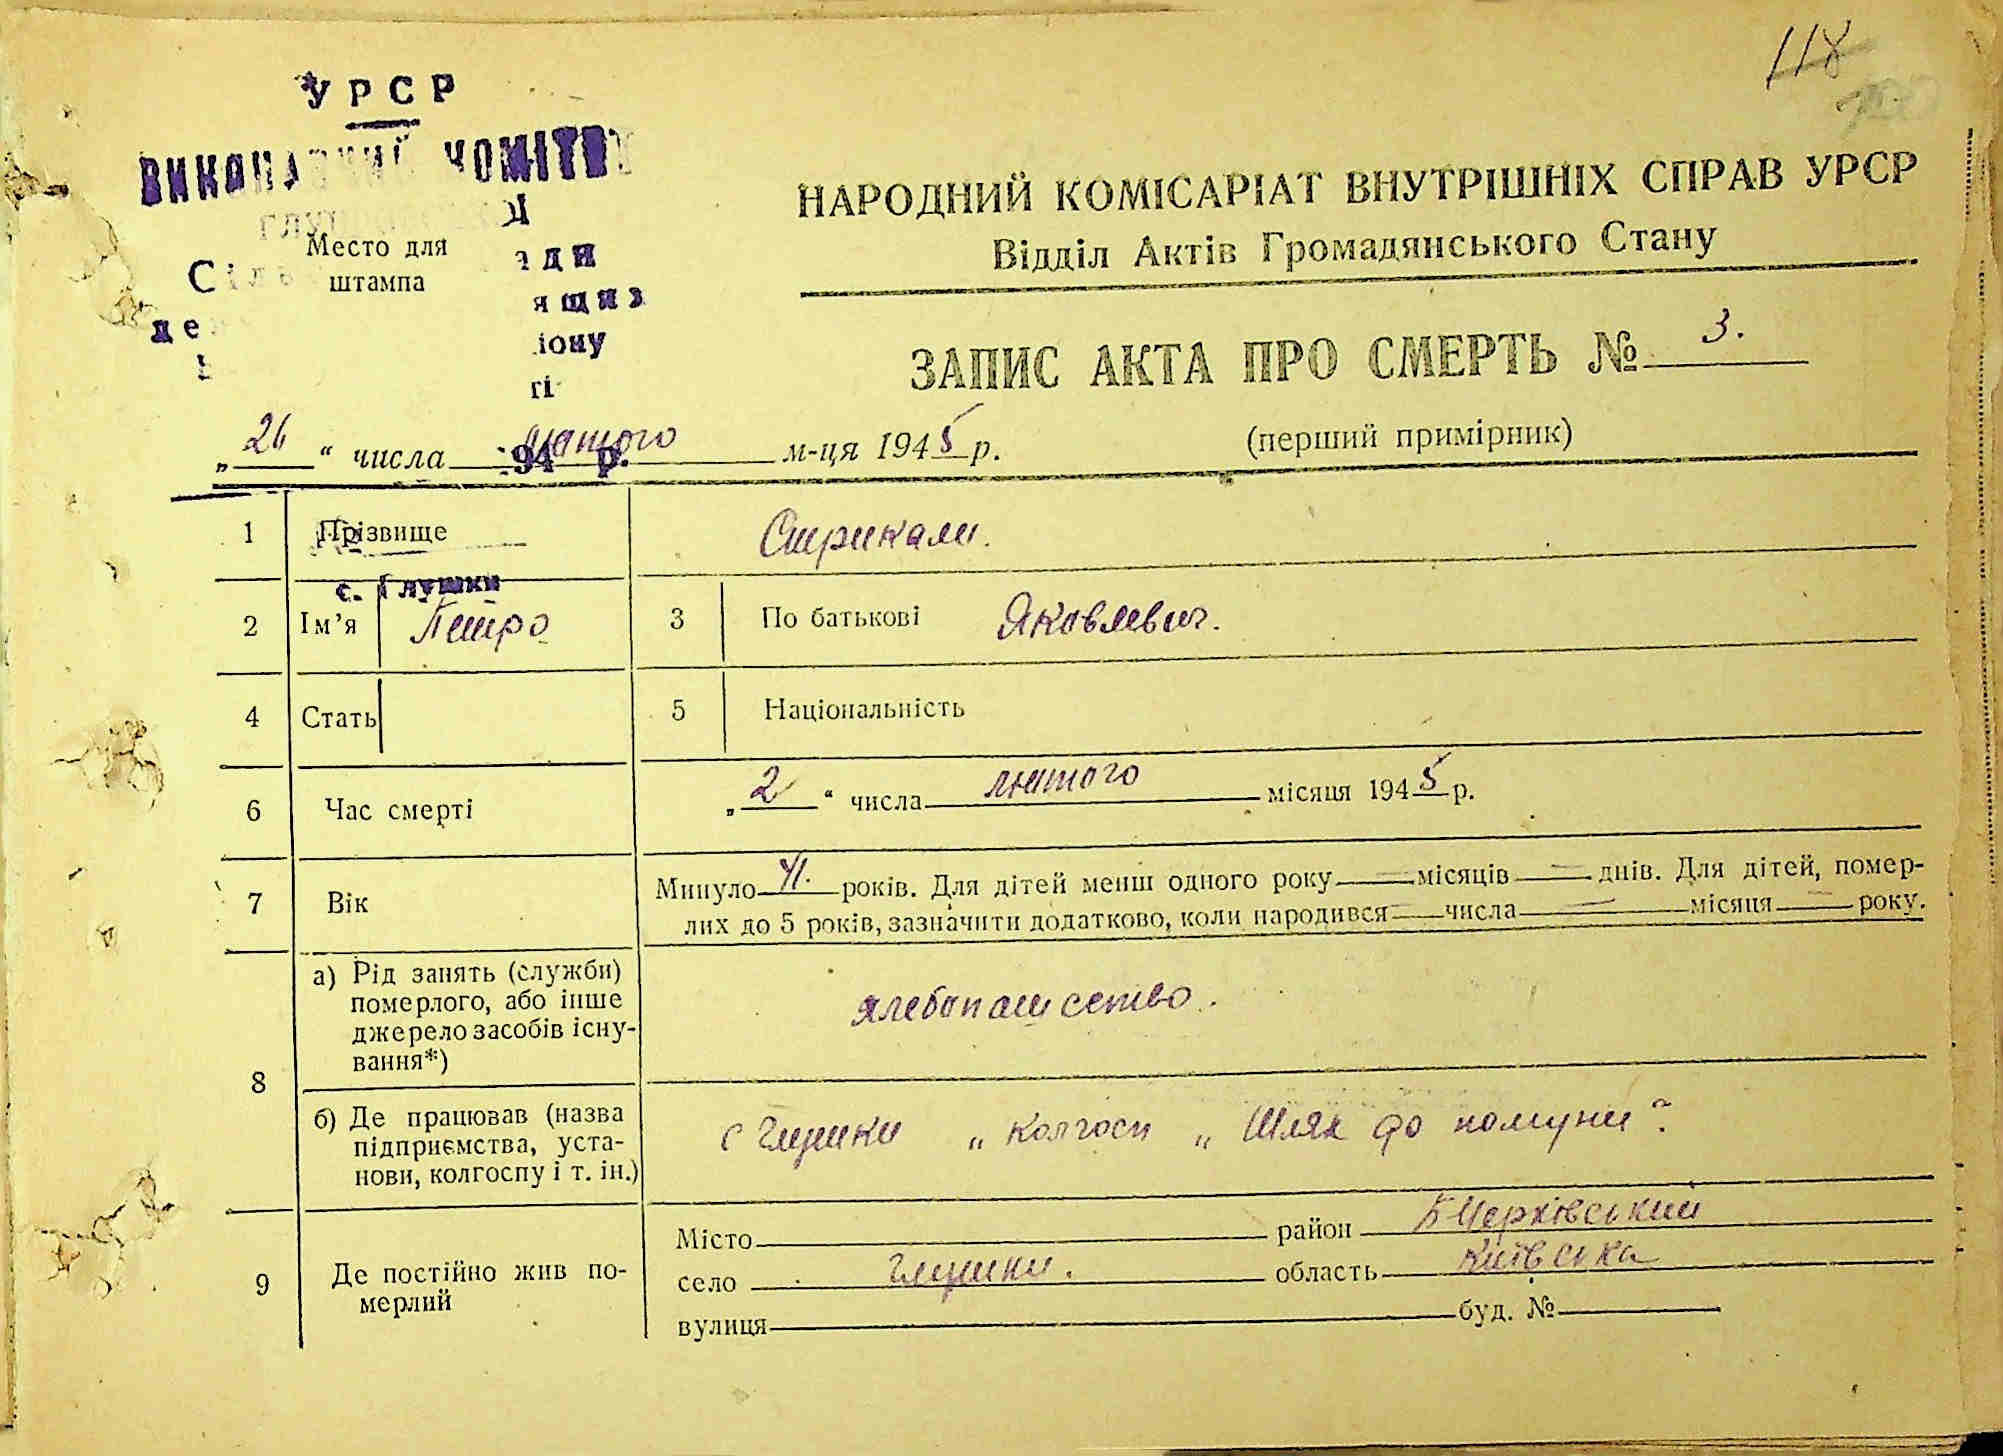 118
УРСР
ВИКОНАВЧИЙ КОМІТЕТ
Место для
штампа
НАРОДНИЙ КОМІСАРІАТ ВНУТРІШНІХ СПРАВ УРСР
Відділ Актів Громадянського Стану
ЗАПИС АКТА ПРО СМЕРТЬ № 3.
(перший примірник)
„26“ числа лютого м-ця 1945 р.
194 р.
1 Прізвище Стрикали.
с. Глушки
2 Ім’я Петро 3 По батькові Яковлевич.
4 Стать 5 Національність
6 Час смерті „2“ числа лютого місяця 1945 р.
7 Вік Минуло 41. років. Для дітей менш одного року — місяців — днів. Для дітей, помер-
лих до 5 років, зазначити додатково, коли народився — числа — місяця — року.
8 а) Рід занять (служби)
померлого, або інше
джерело засобів існу-
вання*)
хлебопашество.
б) Де працював (назва
підприємства, уста-
нови, колгоспу і т. ін.)
с Глушки „ колгосп „ Шлях до комуни“.
9 Де постійно жив по-
мерлий
Місто район Б Церківський
село Глушки. область Київська
вулиця буд. №